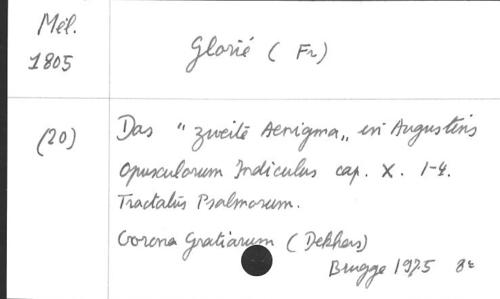 Mél.
1805
Glorié ( Fr)
(20)
Das " zweite Aenigma „ in Augustins
Opusculorum Indiculus cap. X. 1-4.
Tractatus Psalmorum.
Corona Gratiarum ( Dekkers)
Brugge 1975 8º